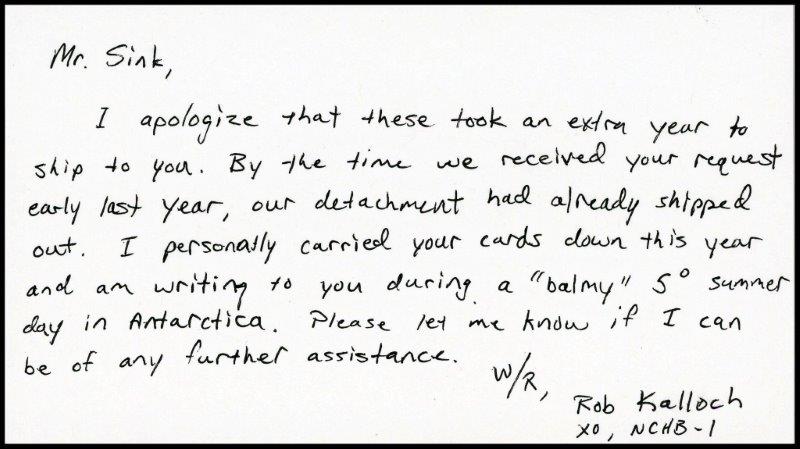 Mr. Sink,
I apologize that these took an extra year to
ship to you. By the time we received your request
early last year, our detachment had already shipped
out. I personally carried your cards down this year
and am writing to you during a "balmy" 5° summer
day in Antarctica. Please let me know if I can
be of any further assistance.
W/R,
Rob Kalloch
XO, NCHB-1